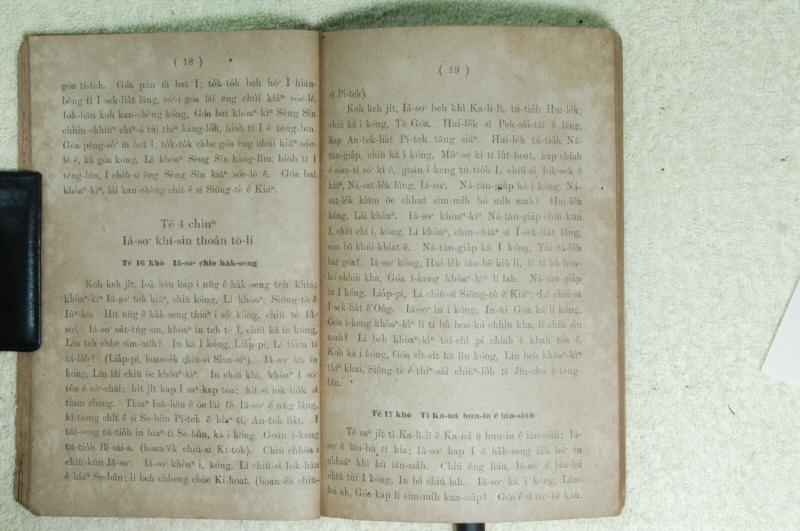 ( 18 )
góa tī-teh. Góa pún m̄ bat I; to̍k-to̍k beh hō͘ I hián-
bêng tī Í-sek-lia̍t lâng, só͘-í góa lâi ēng chúi kiâⁿ sóe-lé.
Iok-hān koh kan-chèng kóng, Góa bat khòaⁿ-kìⁿ Sèng Sîn
chhin-chhiūⁿ chiⁿ-á tùi thiⁿ kàng-lo̍h, hioh tī I ê téng-bīn.
Góa pêng-só͘ m̄ bat I; to̍k-to̍k chhe góa ēng chúi kiâⁿ sóe-
lé ê, kā góa kóng, Lí khòaⁿ Sèng Sîn kàng-lîm, hioh tī I
téng-bīn, I chiū-sī ēng Sèng Sîn kiâⁿ sóe-lé ê. Góa bat
khòaⁿ-kìⁿ, lâi kan-chèng chit ê sī Siōng-tè ê Kiáⁿ.
Tē 4 chiuⁿ
Iâ-so͘ khí-sin thoân tō-lí
Tē 16 khò Iâ-so͘ chio ha̍k-seng
Koh keh ji̍t, Iok-hān kap i nn̄g ê ha̍k-seng teh khiā;
khòaⁿ-kìⁿ Iâ-so͘ teh kiâⁿ, chiū kóng, Lí khòaⁿ, Siōng-tè ê
Iûⁿ-ko. Hit nn̄g ê ha̍k-seng thiaⁿ i só͘ kóng, chiū tè Iâ-
so͘. Iâ-so͘ oa̍t-tńg-sin, khòaⁿ in teh tè I, chiū kā in kóng,
Lín teh chhē sím-mi̍h? In kā I kóng, Lia̍p-pí, Lí tiàm tī
tá-lo̍h? (Lia̍p-pí, hoan-e̍k chiū-sī Sian-siⁿ). Iâ-so͘ kā in
kóng, Lín lâi chiū ōe khòaⁿ-kìⁿ. In chiū khì, khòaⁿ I só͘
tòa ê só͘-chāi; hit ji̍t kap I saⁿ-kap tòa; hit sî iok-lio̍k sī
tiám cheng. Thiaⁿ Iok-hān ê ōe lâi tè Iâ-so͘ ê nn̄g lâng,
kî-tiong chi̍t ê sī Se-bûn Pí-tek ê hiaⁿ-tī, An-tek-lia̍t. I
tāi-seng tú-tio̍h in hiaⁿ-tī Se-bûn, kā i kóng, Goán í-keng
tú-tio̍h Bí-sài-a. (hoan-e̍k chiū-sī Ki-tok). Chiū chhōa i
chiū-kūn Iâ-so͘. Iâ-so͘ khòaⁿ i, kóng, Lí chiū-sī Iok-hān
ê kiáⁿ Se-bûn; lí beh chheng chòe Ki-hoat. (hoan-e̍k chiū-
( 19 )
sī Pí-tek).
Koh keh ji̍t, Iâ-so͘ beh khì Ka-lī-lī, tú-tio̍h Hui-le̍k;
chiū kā i kóng, Tè Góa. Hui-le̍k sī Pek-sài-tāi ê lâng,
kap An-tek-lia̍t Pí-tek tâng siâⁿ. Hui-le̍k tú-tio̍h Ná-
tàn-gia̍p, chiū kā i kóng, Mô͘-se kì tī lu̍t-hoat, kap chiah
ê sian-ti só͘ kì ê, goán í-keng tú-tio̍h I, chiū-sī Iok-sek ê
kiáⁿ, Ná-sat-le̍k lâng, Iâ-so͘. Ná-tàn-gia̍p kā i kóng, Ná-
sat-le̍k kiám ōe chhut sím-mi̍h hó mi̍h mah? Hui-le̍k
kóng, Lâi khòaⁿ. Iâ-so͘ khòaⁿ-kìⁿ Ná-tàn-gia̍p chiū-kūn
I, chiū chí i, kóng, Lí khòaⁿ, chin-chiàⁿ sī Í-sek-lia̍t lâng,
sim bô khúi-khiat ê. Ná-tàn-gia̍p kā I kóng, Tùi tá-lo̍h
bat góa? Iâ-so͘ kóng, Hui-le̍k iáu-bē kiò lí, lí tī bû-hoa-
kó chhiū kha, Góa í-keng khòaⁿ-kìⁿ lí lah. Ná-tàn-gia̍p
ìn I kóng, Lia̍p-pí, Lí chiū-sī Siōng-tè ê Kiáⁿ; Lí chiū-sī
Í-sek-lia̍t ê Ông. Iâ-so͘ ìn i kóng, In-ūi Góa kā lí kóng,
Góa í-keng khòaⁿ-kìⁿ lí tī bû-hoa-kó chhiū kha, lí chiū sìn
mah? Lí beh khòaⁿ-kìⁿ tāi-chì pí chiah ê khah tōa ê.
Koh kā i kóng, Góa si̍t-si̍t kā lín kóng, Lín beh khòaⁿ-kìⁿ
thiⁿ khui, Siōng-tè ê thiⁿ-sài chiūⁿ-lo̍h tī Jîn-chú ê téng-
bīn.
Tē 17 khò Tī Ka-ná hun-in ê iân-siah
Tē saⁿ ji̍t tī Ka-lī-lī ê Ka-ná ū hun-in ê iân-siah; Iâ-
so͘ ê lāu-bú tī hia; Iâ-so͘ kap I ê ha̍k-seng iā hō͘ in
chhiáⁿ khì hù iân-siah. Chiú ēng liáu, Iâ-so͘ ê lāu-bú
chiū tùi I kóng, In bô chiú lah. Iâ-so͘ kā i kóng, Lāu-
bú ah, Góa kap lí sím-mi̍h kan-sia̍p? Góa ê sî iáu-bē kàu.